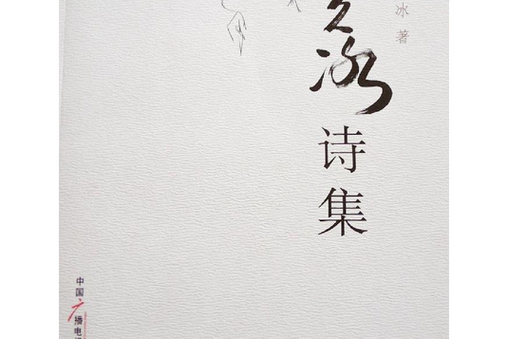 冰 著
冰
诗集
中国广播电